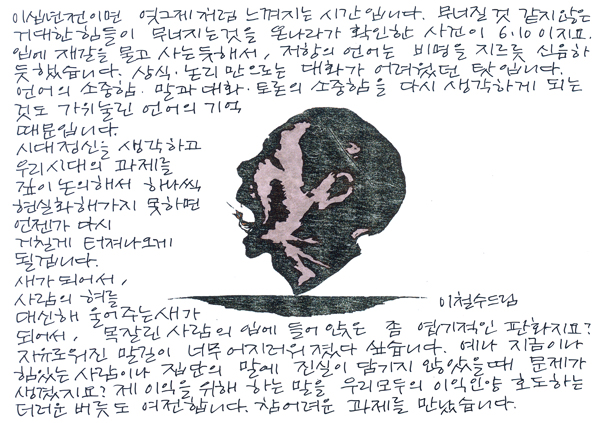 이십년전이면 엊그제처럼 느껴지는 시간입니다. 무너질 것 같지않은
거대한 힘들이 무너지는것을 온나라가 확인한 사건이 6·10 이지요.
입에 재갈을 물고 사는듯해서, 저항의 언어는 비명을 지르듯 신음하
듯했습니다. 상식·논리 만으로는 대화가 어려웠던 탓입니다.
언어의 소중함·말과 대화·토론의 소중함을 다시 생각하게 되는
것도 가위눌린 언어의 기억
때문입니다.
시대정신을 생각하고
우리시대의 과제를
깊이 논의해서 하나씩
현실화해가지 못하면
언젠가 다시
거칠게 터져나오게
될겁니다.
새가 되어서,
사람의 혀를
대신해 울어주는새가
이철수드림
되어서, 목잘린 사람의 입에 들어 앉은 좀 엽기적인 판화지요?
자유로워진 말길이 너무 어지러워졌다 싶습니다. 예나 지금이나
힘있는 사람이나 집단의 말에 진실이 담기지 않았을때 문제가
생겼지요? 제 이익을 위해 하는 말을 우리모두의 이익인양 호도하는
더러운 버릇도 여전합니다. 참어려운 과제를 만났습니다.